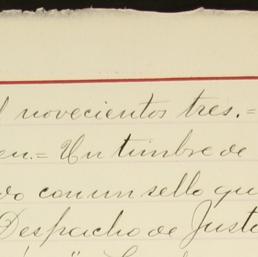 l novecientos tres.=
en.= Un timbre de
do con un sello qu
Despacho de Justo